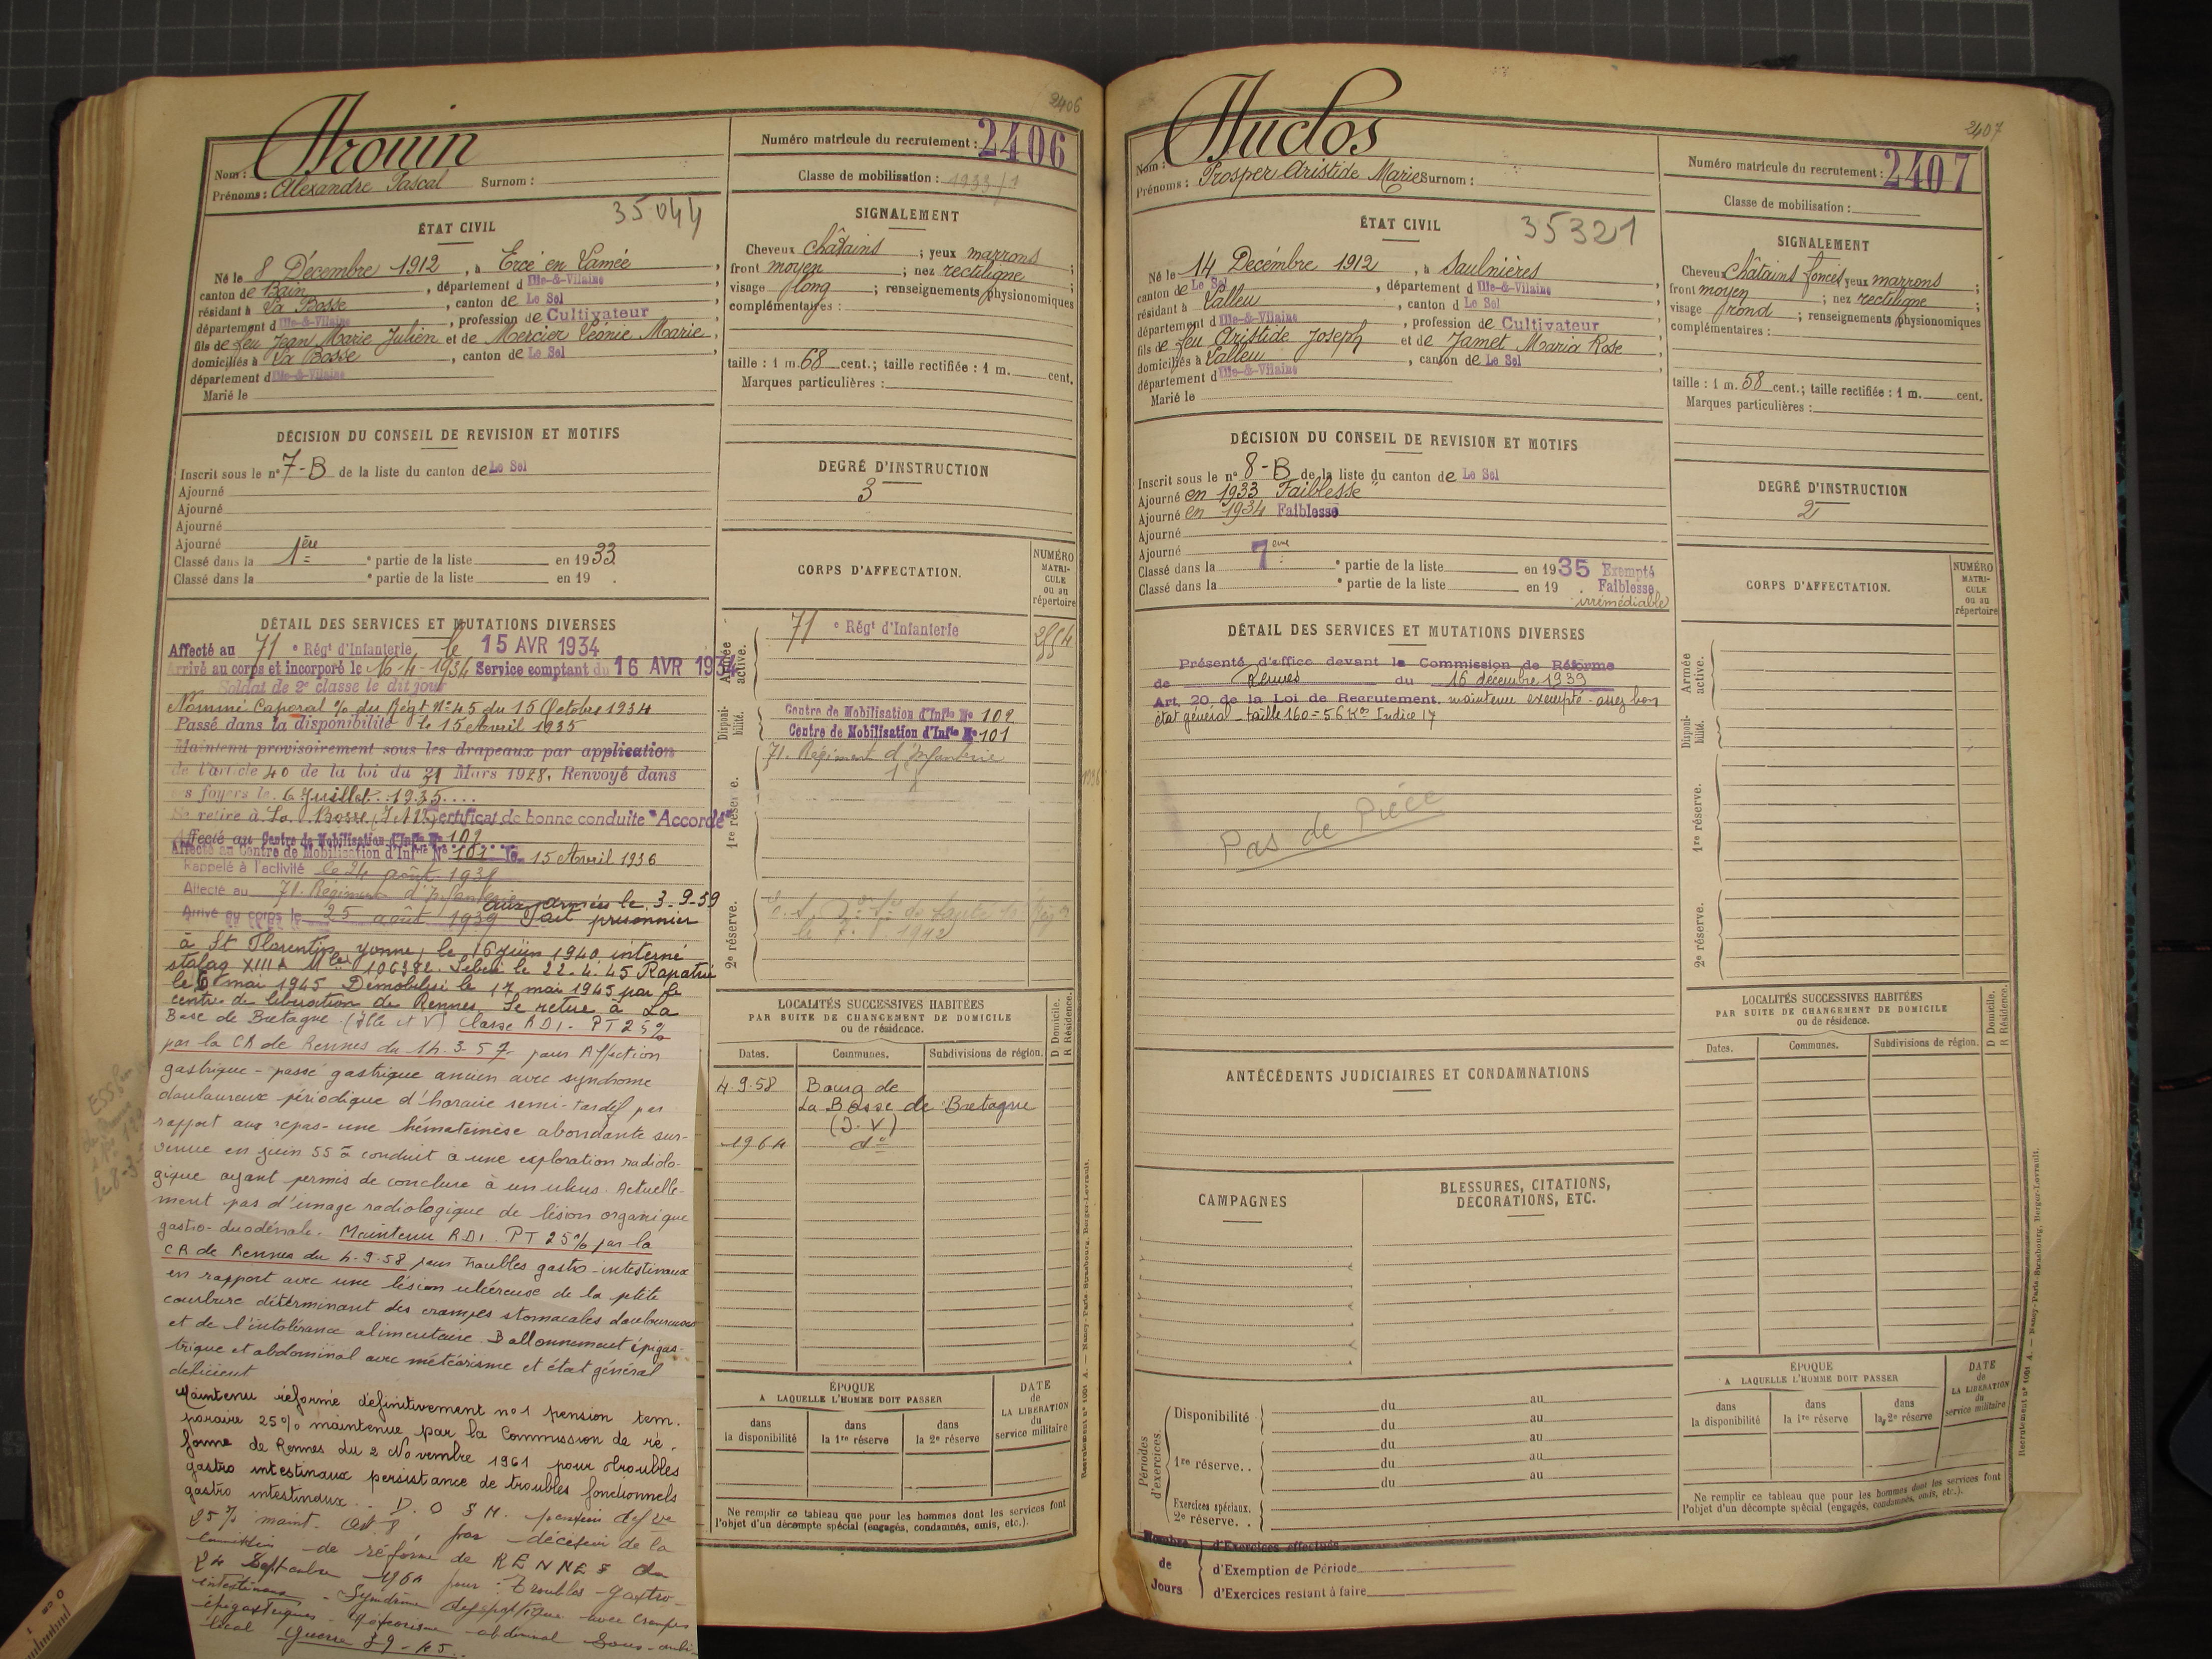 2406
Nom : Arouin
Prénoms : Alexandre Pascal Surnom :
Numéro matricule du recrutement : 2406
Classe de mobilisation : 1933/1
ÉTAT CIVIL
35044
Né le 8 Décembre 1912, à Ercé en Lamée,
canton de Bain, département d Ille-&-Vilaine
résidant à La Bosse, canton de Le Sel
département d Ille-&-Vilaine, profession de Cultivateur
fils de feu Jean Marie Julien et de Mercier Léonie Marie,
domiciliés à La Bosse, canton de Le Sel,
département d Ille-&-Vilaine
Marié le
SIGNALEMENT
Cheveux châtains ; yeux marrons ;
front moyen ; nez rectiligne ;
visage long ; renseignements physionomiques
complémentaires :
taille : 1 m. 68 cent.; taille rectifiée : 1 m. cent.
Marques particulières :
DÉCISION DU CONSEIL DE REVISION ET MOTIFS
Inscrit sous le n° 7-B de la liste du canton de Le Sel
Ajourné
Ajourné
Ajourné
Ajourné
Classé dans la 1ère ° partie de la liste en 1933
Classé dans la ° partie de la liste en 19 .
DEGRÉ D'INSTRUCTION
3
CORPS D'AFFECTATION.
NUMÉRO MATRI-CULE ou au répertoire
DÉTAIL DES SERVICES ET MUTATIONS DIVERSES
Affecté au 71 e Régt d'Infanterie le 15 AVR 1934
Arrivé au corps et incorporé le 16-4-1934 Service comptant du 16 AVR 1934
Soldat de 2e classe le dit jour
Nommé Caporal % du Régt N°45 du 15 Octobre 1934
Passé dans la disponibilité le 15 Avril 1935
Maintenu provisoirement sous les drapeaux par application
de l'article 40 de la loi du 31 Mars 1928. Renvoyé dans
ses foyers le 6 Juillet 1935
Se retire à La Bosse (I&V) Certificat de bonne conduite "Accordé"
Affecté au Centre de Mobilisation d'Infie N° 102
Affecté au Centre de Mobilisation d'Infie N° 101 le 15 Avril 1936
Rappelé à l'activité le 24 août 1939
Affecté au 71. Régiment d'Infanterie aux armées le 3-9-39
Arrivé au corps le 25 août 1939 Fait prisonnier
à St Florentin, Yonne, le 16 juin 1940 interné
stalag XIII A Mle 106382. Libéré le 22.4.45 Rapatrié
le 6 mai 1945 Démobilisé le 17 mai 1945 par le
centre de libération de Rennes. Se retire à La
Bosse de Bretagne (Ille et V) Classé RD1 - PT 25%
par la CR de Rennes du 14.3.57 pour Affection
gastrique - passé gastrique ancien avec syndrome
douloureux périodique d'horaire semi-tardif par
rapport aux repas - une hématémèse abondante sur-
venue en juin 55 a conduit à une exploration radiolo-
gique ayant permis de conclure à un ulcus. Actuelle-
ment pas d'image radiologique de lésion organique
gastro-duodénale. Maintenu RD1. PT 25% par la
CR de Rennes du 4-9-58 pour troubles gastro-intestinaux
en rapport avec une lésion ulcéreuse de la petite
courbure déterminant des crampes stomacales douloureuses
et de l'intolérance alimentaire. Ballonnement épigas-
trique et abdominal avec météorisme et état général
déficient
Maintenu réformé définitivement n°1 pension tem-
poraire 25% maintenue par la Commission de ré-
forme de Rennes du 2 Novembre 1961 pour troubles
gastro intestinaux persistance de troubles fonctionnels
gastro intestinaux.
25% maint. par décision de la
de réforme de RENNES du
24 Septembre 1964 pour : Troubles gastro-
intestinaux - Syndrome dyspeptique avec crampes
épigastriques. Météorisme abdominal
Guerre 39-45.
Armée active.
71 e Régt d'Infanterie
Disponi-bilité.
Centre de Mobilisation d'Infie N° 102
Centre de Mobilisation d'Infie N° 101
1re réserve.
71. Régiment d'Infanterie
2e réserve.
LOCALITÉS SUCCESSIVES HABITÉES
PAR SUITE DE CHANGEMENT DE DOMICILE
ou de résidence.
D Domicile. R Résidence.
Dates. Communes. Subdivisions de région.
4-9-58 Bourg de
La Bosse de Bretagne
(I.V)
1964 d°
ÉPOQUE
A LAQUELLE L'HOMME DOIT PASSER
DATE de LA LIBÉRATION du service militaire
dans la disponibilité
dans la 1re réserve
dans la 2e réserve
Ne remplir ce tableau que pour les hommes dont les services font
l'objet d'un décompte spécial (engagés, condamnés, omis, etc.).
Recrutement n° 1001 A. — Nancy-Paris-Strasbourg, Berger-Levrault.
2407
Nom : Auclos
Prénoms : Prosper Aristide Marie Surnom :
Numéro matricule du recrutement : 2407
Classe de mobilisation :
ÉTAT CIVIL
35321
Né le 14 Décembre 1912, à Saulnières
canton de Le Sel, département d Ille-&-Vilaine
résidant à Lalleu, canton d Le Sel
département d Ille-&-Vilaine, profession de Cultivateur
fils de feu Aristide Joseph et de Jamet Maria Rose,
domiciliés à Lalleu, canton de Le Sel,
département d Ille-&-Vilaine
Marié le
SIGNALEMENT
Cheveux châtains foncés yeux marrons ;
front moyen ; nez rectiligne ;
visage rond ; renseignements physionomiques
complémentaires :
taille : 1 m. 58 cent.; taille rectifiée : 1 m. cent.
Marques particulières :
DÉCISION DU CONSEIL DE REVISION ET MOTIFS
Inscrit sous le n° 8-B de la liste du canton de Le Sel
Ajourné en 1933 "Faiblesse"
Ajourné en 1934 Faiblesse
Ajourné
Ajourné
Classé dans la 7eme ° partie de la liste en 1935 Exempté
Classé dans la ° partie de la liste en 19 . Faiblesse
irrémédiable
DEGRÉ D'INSTRUCTION
2
CORPS D'AFFECTATION.
NUMÉRO MATRI-CULE ou au répertoire
DÉTAIL DES SERVICES ET MUTATIONS DIVERSES
Présenté d'office devant la Commission de Réforme
de Rennes du 16 décembre 1939
Art. 20 de la Loi de Recrutement. maintenu exempté - assez bon
état général - taille 160 = 56 Kos Indice 17
Pas de Pièce
Armée active.
Disponi-bilité.
1re réserve.
2e réserve.
ANTÉCÉDENTS JUDICIAIRES ET CONDAMNATIONS
CAMPAGNES
BLESSURES, CITATIONS,
DÉCORATIONS, ETC.
LOCALITÉS SUCCESSIVES HABITÉES
PAR SUITE DE CHANGEMENT DE DOMICILE
ou de résidence.
D Domicile. R Résidence.
Dates. Communes. Subdivisions de région.
Périodes d'exercices.
Disponibilité du au
du au
1re réserve.. du au
du au
du au
Exercices spéciaux.
2e réserve..
Nombre de Jours
d'Exercices effectués
d'Exemption de Période
d'Exercices restant à faire
ÉPOQUE
A LAQUELLE L'HOMME DOIT PASSER
DATE de LA LIBÉRATION du service militaire
dans la disponibilité
dans la 1re réserve
dans la 2e réserve
Ne remplir ce tableau que pour les hommes dont les services font
l'objet d'un décompte spécial (engagés, condamnés, omis, etc.).
Recrutement n° 1001 A. — Nancy-Paris-Strasbourg, Berger-Levrault.